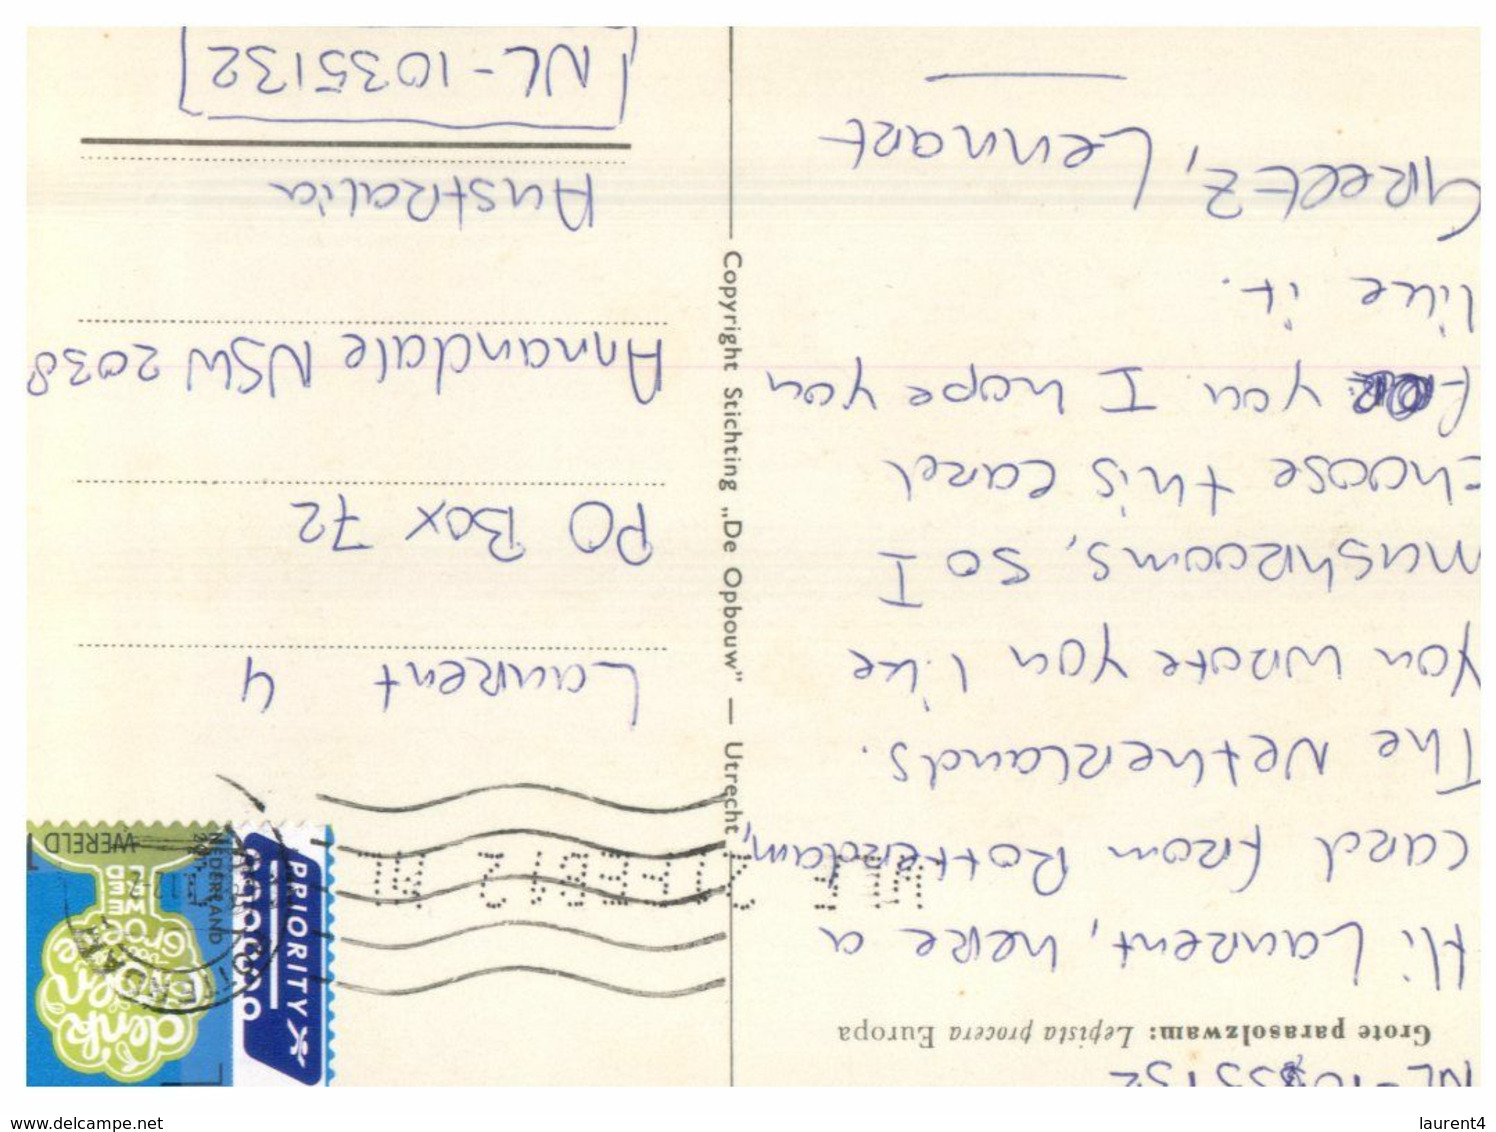 NL-10355132
Grote parasolzwam: Lepista procera Europa
Hi Laurent, here a
card from Rotterdam,
The Netherlands.
You wrote you like
mushrooms, so I
choose this card
for you I hope you
like it.
Greetz, Lennart
Copyright Stichting „De Opbouw” — Utrecht
PRIORITY
denk
groen
doe
groen
WERELD
NEDERLAND
21 FEB 12
Laurent 4
PO Box 72
Annandale NSW 2038
Australia
NL-1035132
www.delcampe.net
laurent4